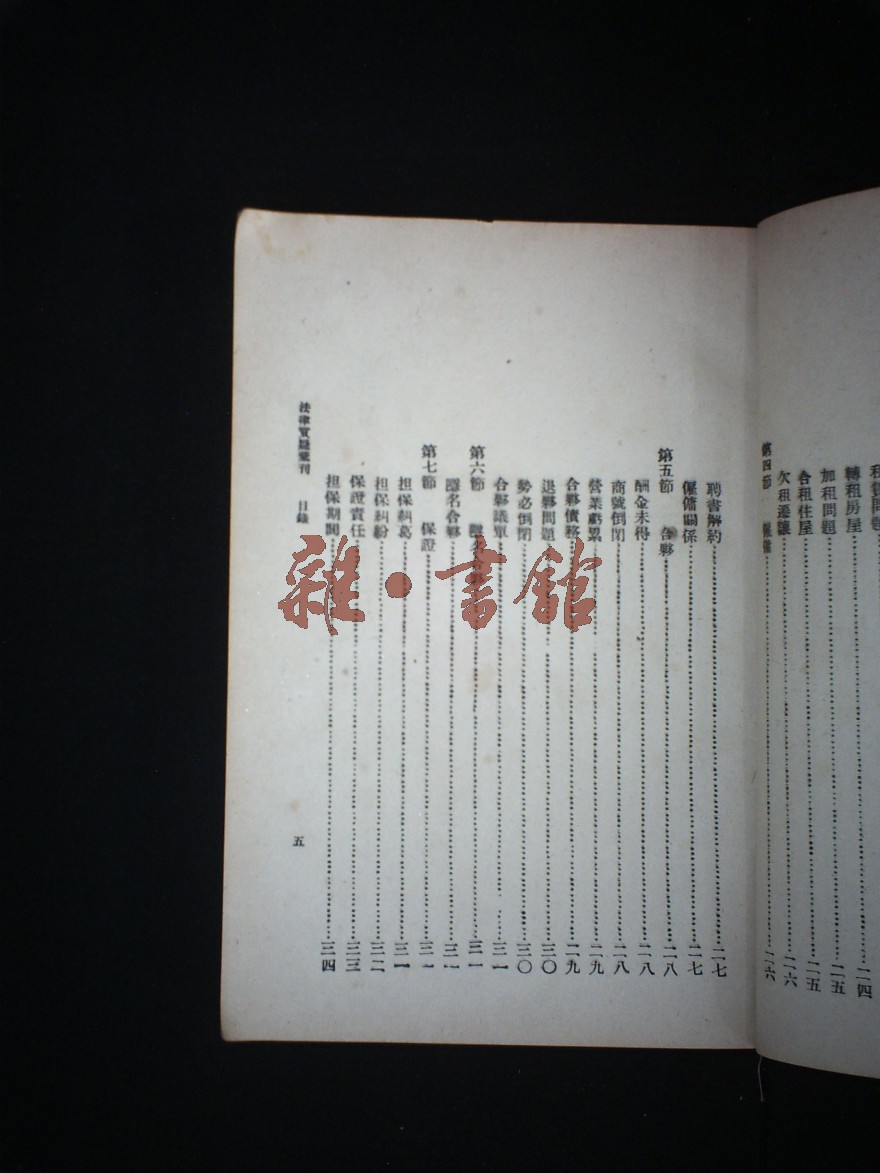 租賃問題
轉租房屋……二四
加租問題……二五
合租住屋……二五
欠租遷讓……二六
第四節 僱傭……二六
聘書解約……二七
僱傭關係……二七
第五節 合夥……二八
酬金未得……二八
商號倒閉……二八
營業虧累……二九
合夥債務……二九
退夥問題……三〇
勢必倒閉……三〇
合夥議單……三一
第六節 隱名合夥……三一
隱名合夥……三一
第七節 保證……三一
担保糾葛……三一
担保糾紛……三二
保證責任……三三
担保期間……三四
法律質疑彙刊 目錄
五
雜·書館